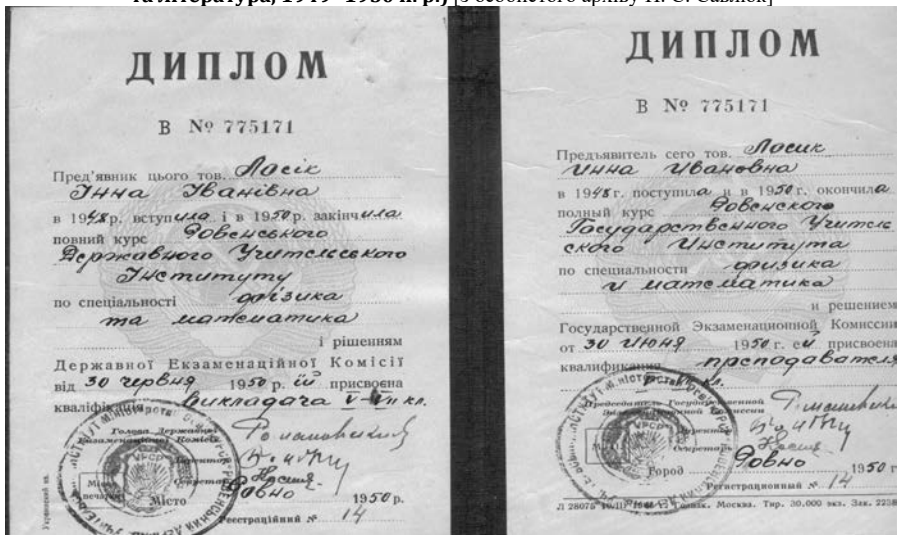 та література, 1949–1950 н. р.) [з особистого архіву Н. С. Савлюк]
ДИПЛОМ
В № 775171
Пред'явник цього тов. Лосік
Інна Іванівна
в 1948 р. вступила і в 1950 р. закінчила
повний курс Ровенського
Державного Учительського
Інституту
по спеціальності фізика
та математика
і рішенням
Державної Екзаменаційної Комісії
від 30 червня 1950 р. їй присвоєна
кваліфікація викладача V–VII кл.
Голова Державної
Екзаменаційної Комісії
Директор
Секретар
Місто Ровно 1950 р.
Реєстраційний № 14
ДИПЛОМ
В № 775171
Предъявитель сего тов. Лосик
Инна Ивановна
в 1948 г. поступила и в 1950 г. окончила
полный курс Ровенского
Государственного Учитель
ского Института
по специальности физика
и математика
и решением
Государственной Экзаменационной Комиссии
от 30 июня 1950 г. ей присвоена
квалификация преподавателя
кл.
Председатель Государственной
Экзаменационной Комиссии
Директор
Секретарь
Город Ровно 1950 г
Регистрационный № 14
Москва. Тир. 30.000 экз. Зак. 2238